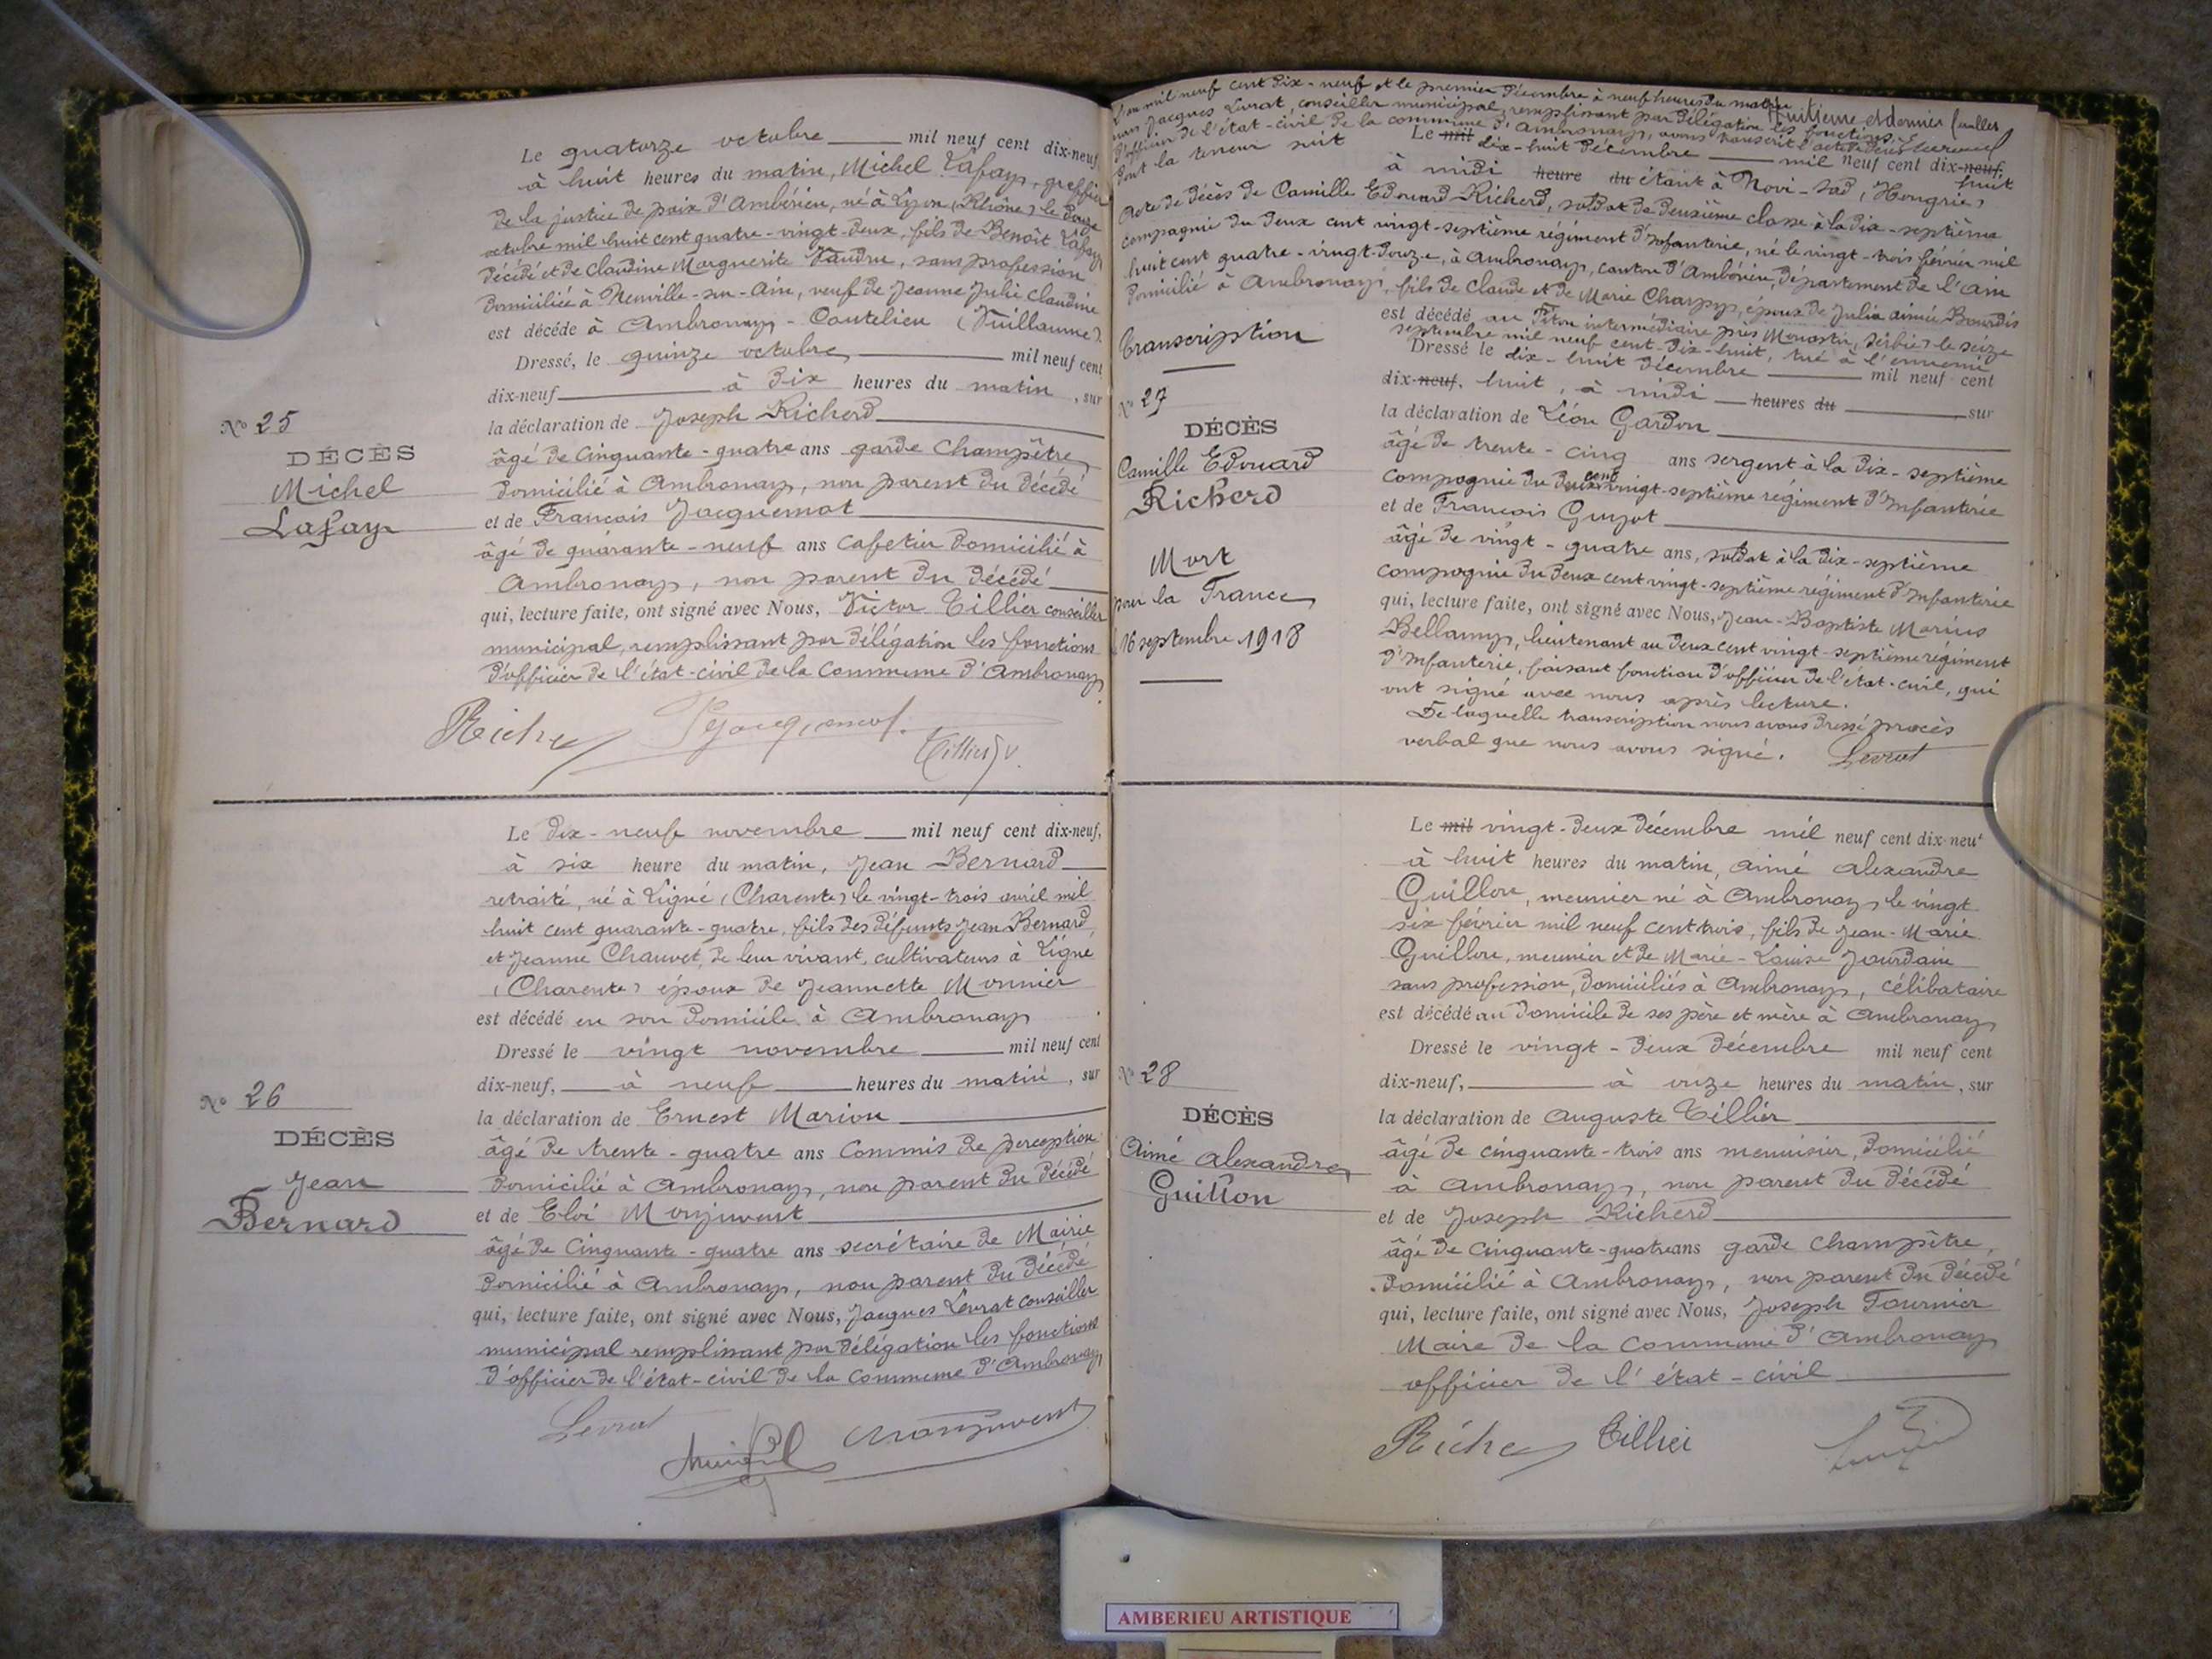 Le quatorze octobre mil neuf cent dix-neuf
à huit heures du matin, Michel Lafay, greffier
de la justice de paix d'Ambérieu, né à Lyon (Rhône) le douze
octobre mil huit cent quatre-vingt-deux, fils de Benoît Lafay
décédé et de Claudine Marguerite, sans profession
domiciliée à Neuville-sur-Ain, veuf de Jeanne Julie Claudine
est décédé à Ambronay-Coutelieu (Vuillaume).
Dressé, le quinze octobre, mil neuf cent
dix-neuf à dix heures du matin, sur
la déclaration de Joseph Richerd
âgé de cinquante-quatre ans garde champêtre
domicilié à Ambronay, non parent du décédé
et de François Jacquemot
âgé de quarante-neuf ans cafetier domicilié à
Ambronay, non parent du décédé
qui, lecture faite, ont signé avec Nous, Victor Tillier conseiller
municipal, remplissant par délégation les fonctions
d'officier de l'état-civil de la commune d'Ambronay
N° 25
DÉCÈS
Michel
Lafay
Tillier V.
Le dix-neuf novembre mil neuf cent dix-neuf,
à six heure du matin, Jean Bernard
retraité, né à Ligné (Charente) le vingt-trois avril mil
huit cent quarante-quatre, fils des défunts Jean Bernard,
et Jeanne Chauvet, de leur vivant, cultivateurs à Ligné
(Charente) époux de Jeannette Monnier
est décédé en son domicile à Ambronay
Dressé le vingt novembre mil neuf cent
dix-neuf, à neuf heures du matin, sur
la déclaration de Ernest Marion
âgé de trente-quatre ans commis de perception
domicilié à Ambronay, non parent du décédé
et de Eloi Monjuvent
âgé de cinquante-quatre ans secrétaire de Mairie
domicilié à Ambronay, non parent du décédé
qui, lecture faite, ont signé avec Nous, Jacques Levrat conseiller
municipal remplissant par délégation les fonctions
d'officier de l'état-civil de la commune d'Ambronay
N° 26
DÉCÈS
Jean
Bernard
Levrat
Monjuvent
L'an mil neuf cent dix-neuf et le premier décembre à neuf heures du matin
nous Jacques Levrat, conseiller municipal, remplissant par délégation les fonctions
d'officier de l'état-civil de la commune d'Ambronay, avons transcrit l'acte de décès
dont la teneur suit
Huitième et dernier feuillet
Le mil dix-huit décembre mil neuf cent dix-neuf. huit
à midi heure du étant à Novi-Sad, (Hongrie)
Acte de décès de Camille Edouard Richerd, soldat de deuxième classe à la dix-septième
compagnie du deux cent vingt-septième régiment d'infanterie, né le vingt-trois février mil
huit cent quatre-vingt-douze, à Ambronay, canton d'Ambérieu, département de l'Ain
domicilié à Ambronay, fils de Claude et de Marie Charpy, époux de Julia aimée Bourdis
est décédé au Piton intermédiaire près Monastir, (Serbie) le seize
septembre mil neuf cent-dix-huit, tué à l'ennemi
Dressé le dix-huit décembre mil neuf cent
dix-neuf. huit, à midi heures du sur
la déclaration de Léon Gardon
âgé de trente-cinq ans sergent à la dix-septième
compagnie du deux cent vingt-septième régiment d'infanterie
et de François Guyot
âgé de vingt-quatre ans, soldat à la dix-septième
compagnie du deux cent vingt-septième régiment d'infanterie
qui, lecture faite, ont signé avec Nous, Jean-Baptiste Marius
Bellamy, lieutenant au deux cent vingt-septième régiment
d'infanterie, faisant fonction d'officier de l'état-civil, qui
ont signé avec nous après lecture.
De laquelle transcription nous avons dressé procès
verbal que nous avons signé. Levrat
Transcription
N° 27
DÉCÈS
Camille Edouard
Richerd
Mort
pour la France
16 septembre 1918
Le mil vingt-deux décembre mil neuf cent dix-neuf
à huit heures du matin, Aimé Alexandre
Guillon, meunier né à Ambronay le vingt
six février mil neuf cent trois, fils de Jean-Marie
Guillon, meunier et de Marie-Louise Jourdain
sans profession, domiciliés à Ambronay, célibataire
est décédé au domicile de ses père et mère à Ambronay
Dressé le vingt-deux décembre mil neuf cent
dix-neuf, à onze heures du matin, sur
la déclaration de Auguste Tillier
âgé de cinquante-trois ans menuisier, domicilié
à Ambronay, non parent du décédé
et de Joseph Richerd
âgé de cinquante-quatre ans garde champêtre,
domicilié à Ambronay, non parent du décédé
qui, lecture faite, ont signé avec Nous, Joseph Fournier
Maire de la commune d'Ambronay
officier de l'état-civil
N° 28
DÉCÈS
Aimé Alexandre
Guillon
Tillier
AMBERIEU ARTISTIQUE